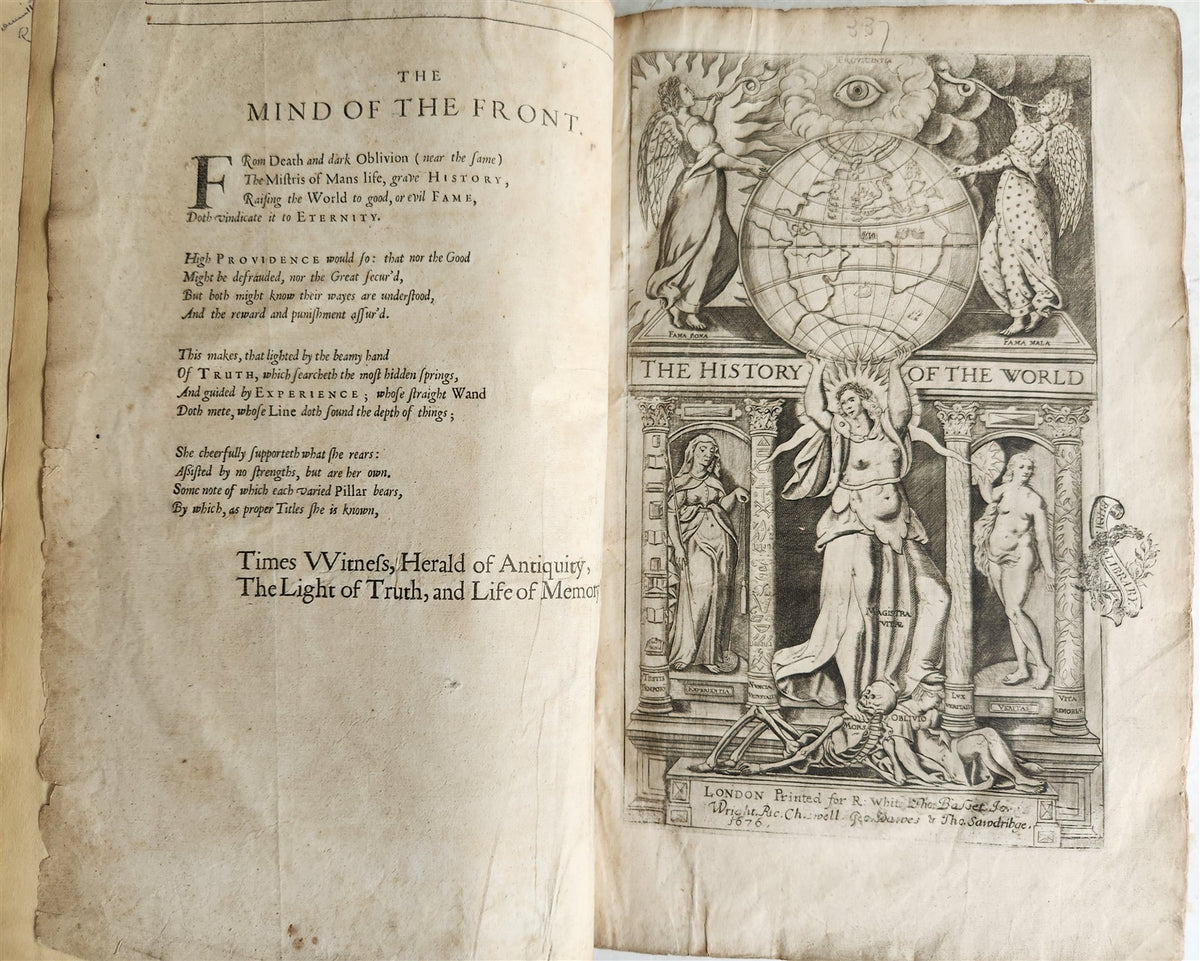 THE
MIND OF THE FRONT.
FRom Death and dark Oblivion (near the ſame)
The Miſtris of Mans life, grave HISTORY,
Raiſing the World to good, or evil FAME,
Doth vindicate it to ETERNITY.
High PROVIDENCE would ſo: that nor the Good
Might be defrauded, nor the Great ſecur'd,
But both might know their wayes are underſtood,
And the reward and puniſhment aſſur'd.
This makes, that lighted by the beamy hand
Of TRUTH, which ſearcheth the moſt hidden ſprings,
And guided by EXPERIENCE; whoſe ſtraight Wand
Doth mete, whoſe Line doth ſound the depth of things;
She cheerfully ſupporteth what ſhe rears:
Aſſiſted by no ſtrengths, but are her own.
Some note of which each varied Pillar bears,
By which, as proper Titles ſhe is known,
Times VVitneſs, Herald of Antiquity,
The Light of Truth, and Life of Memor
337
PROVIDENTIA
FAMA BONA
FAMA MALA
THE HISTORY OF THE WORLD
MAGISTRA
VITÆ
TESTIS
TEMPORV
EXPERIENTIA
NVNCIA
VETVSTATIS
LVX
VERITATIS
VERITAS
VITA
MEMORIÆ
MORS
OBLIVIO
LONDON Printed for R. Whit Tho. Basset, Jo.
Wright, Ric. Chiswell. Geo. Dawes & Tho. Sawdribge.
1676.
LIBRARY